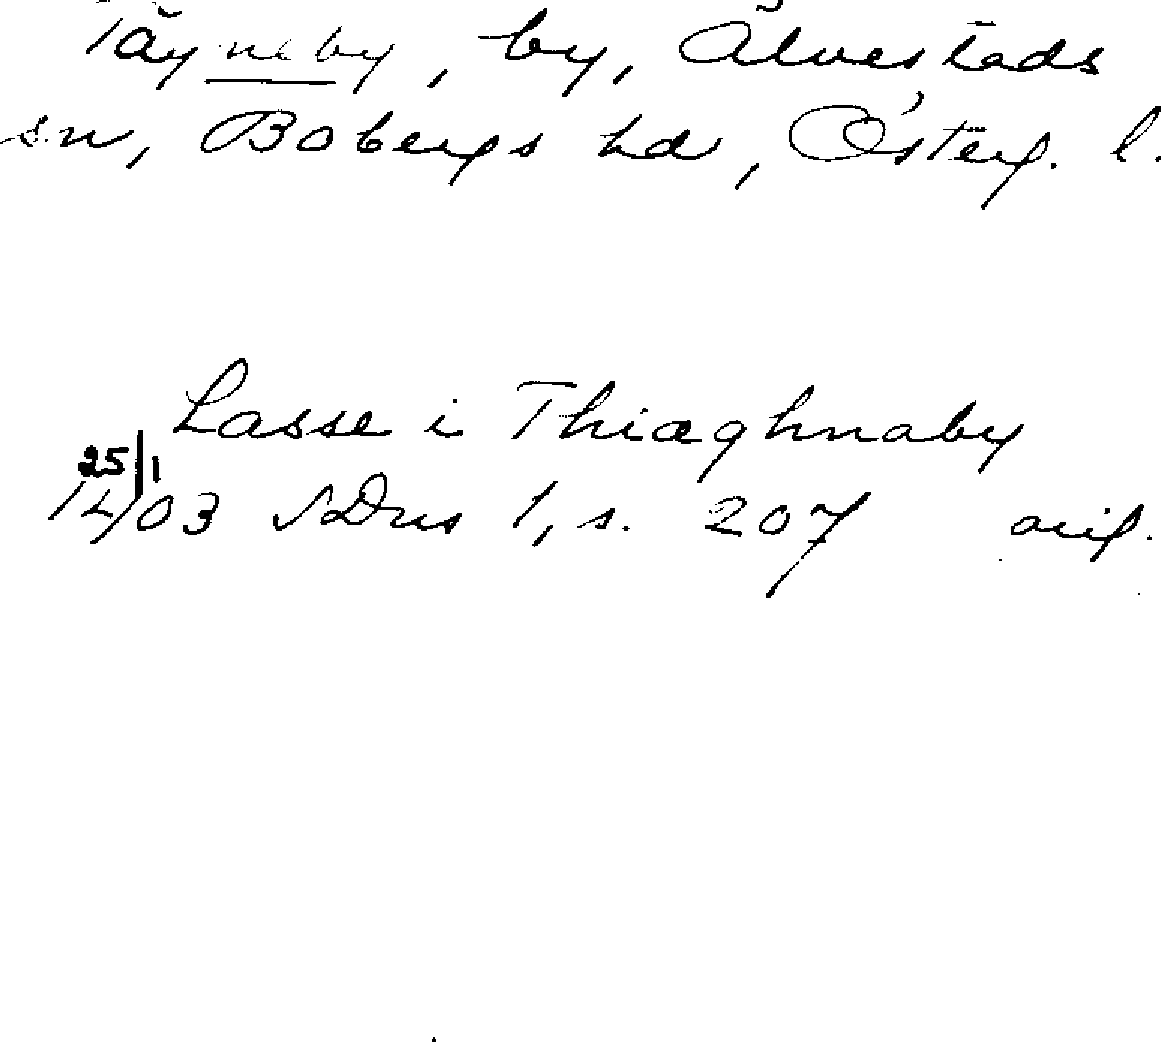 Tägneby, by, Älvestads
sn, Bobergs hd, Österg. l.
Lasse i Thiæghnaby
25/1
1403 SDns 1, s. 207 orig.